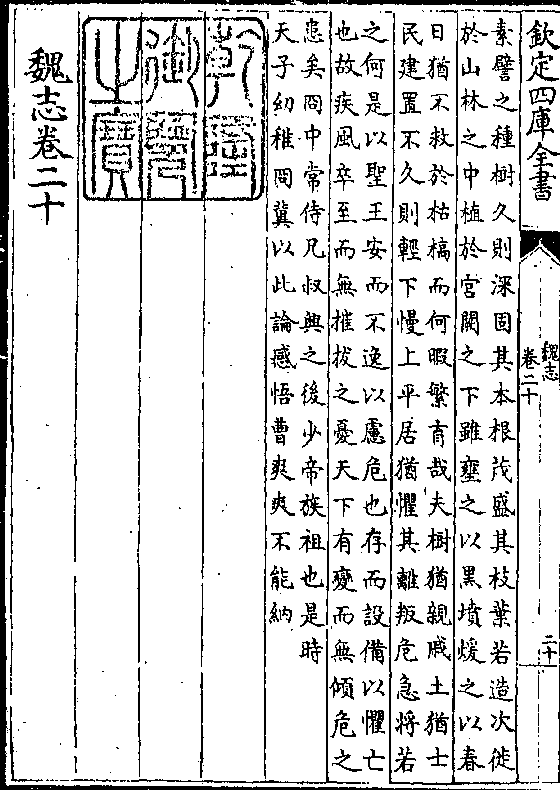 欽定四庫全書
魏志
卷二十
二十
素譬之種樹久則深固其本根茂盛其枝葉若造次徙
於山林之中植於宮闕之下雖壅之以黑墳煖之以春
日猶不救於枯槁而何暇繁育哉夫樹猶親戚土猶士
民建置不久則輕下慢上平居猶懼其離叛危急將若
之何是以聖王安而不逸以慮危也存而設備以懼亡
也故疾風卒至而無摧拔之憂天下有變而無傾危之
患矣冏中常侍兄叔興之後少帝族祖也是時
天子幼稚冏冀以此論感悟曹爽爽不能納
乾隆
御覽
之寶
魏志卷二十